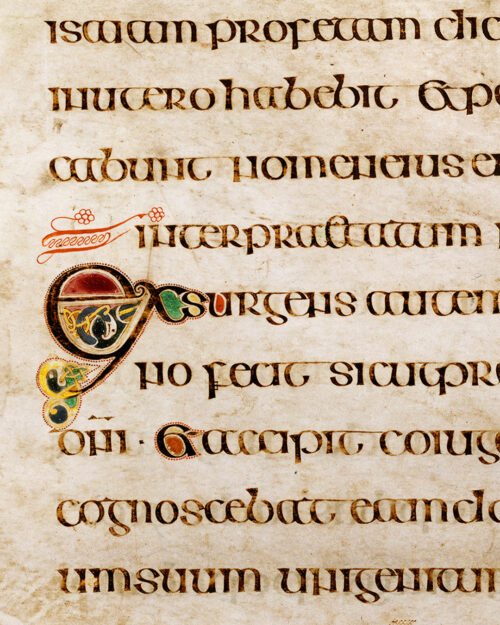 isaiam profetam dic
inutero habebit & pa
cabunt nomen eius em
interpraetatum
Exsurgens autem
no fecit sicut pre
dn̄i · & accipit coiug
cognoscebat eam do
um suum unigenitum